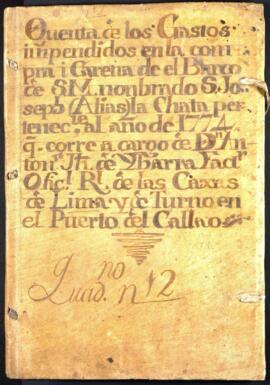 Quenta de los Gastos
impendidos en la com
pra i Carena de el Barco
de S.M. nonbrado S. Jo
seph (Alias) la Chata per
tenec.te al año de 1774
q. corre a cargo de Dn An
ton. Jh. de Ybarra Factr
Ofic.l Rl. de las Caxas
de Lima y de Turno en
el Puerto del Callao
no
Quad. n 12